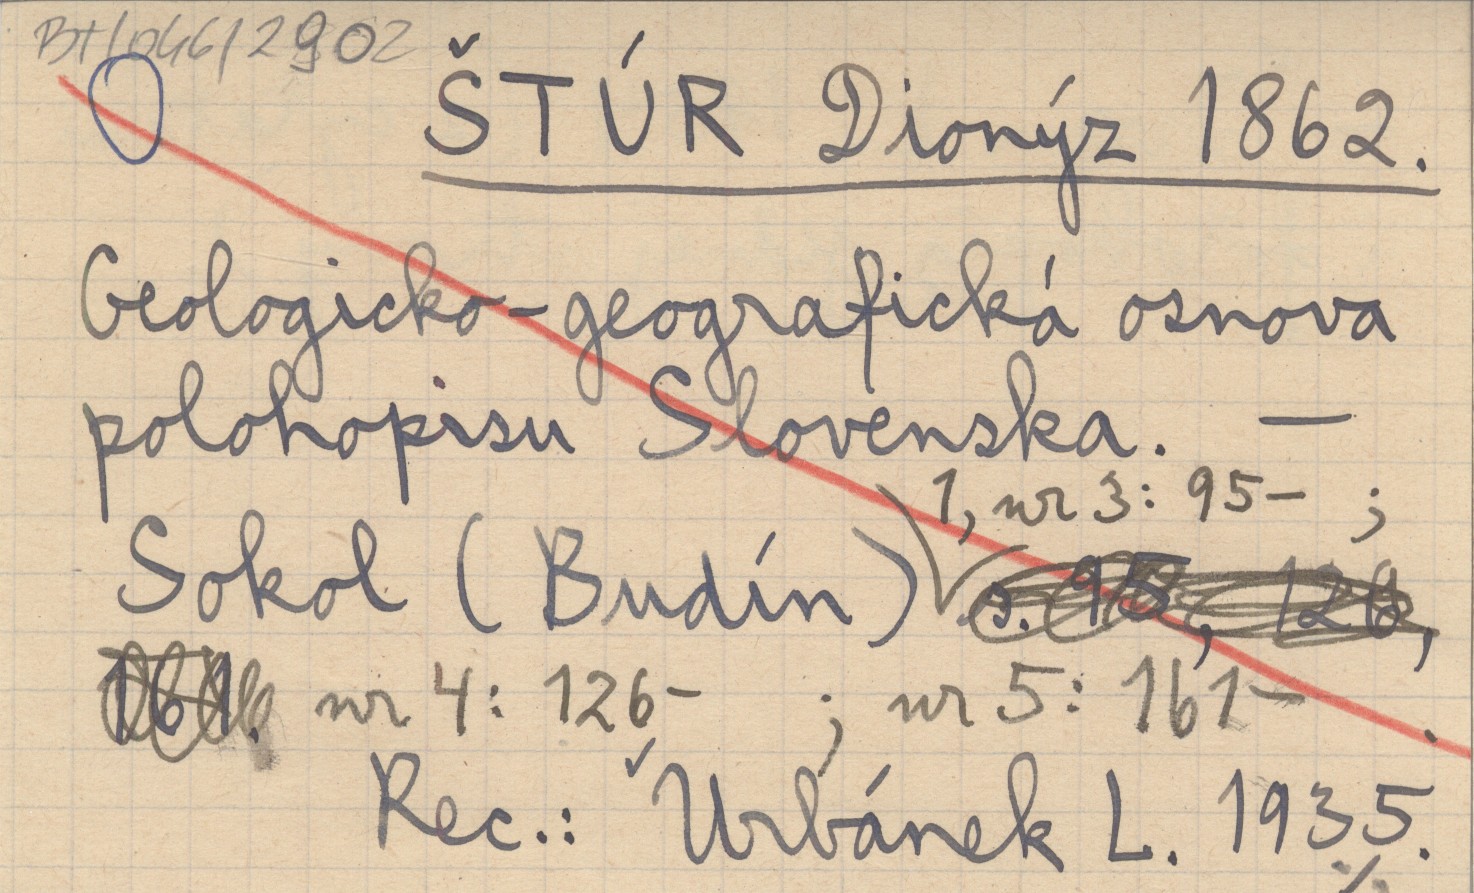 2902
ŠTÚR Dionýz 1862.
Geologicko-geografická osnova
polohopisu Slovenska. —
1, nr 3: 95- ;
Sokol (Budín) s. 95, 126,
161. nr 4: 126- ; nr 5: 161- .
Rec.: Urbánek L. 1935.
·/.